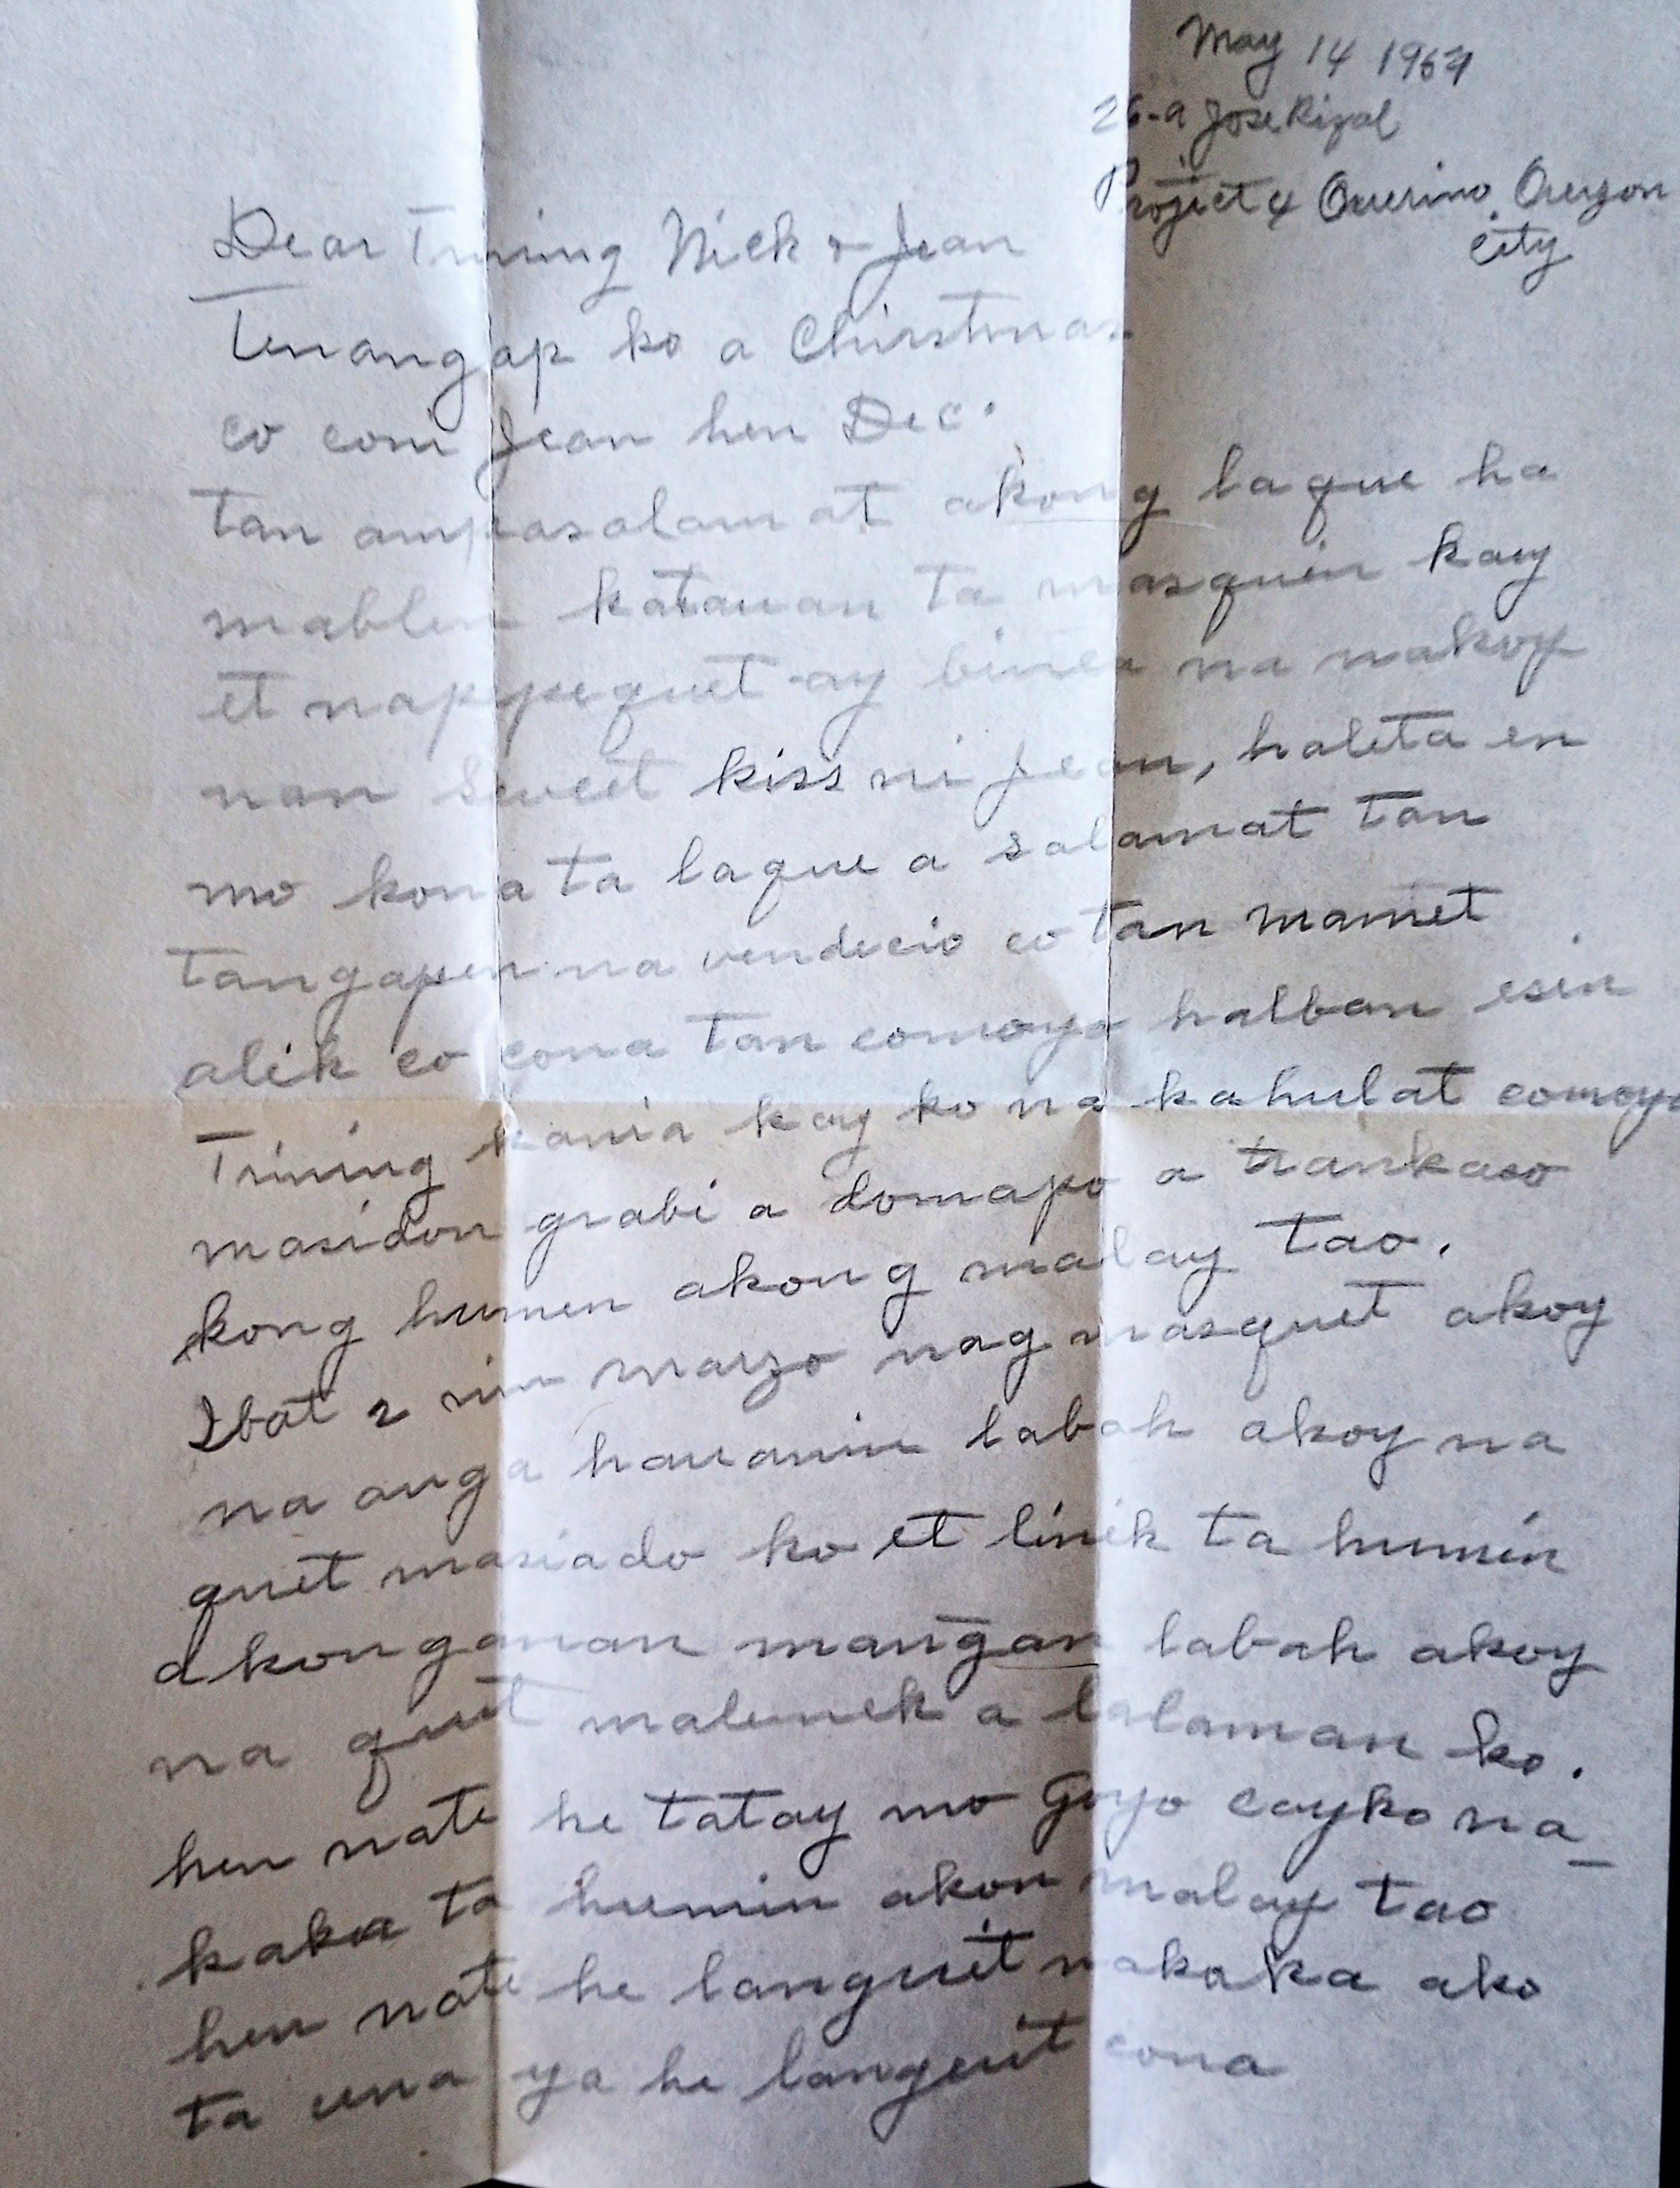 May 14 1967
26-a Jose Rizal
Project 4 Querino. Quezon
City
Dear Trining Nick & Jean
Tenangap ko a Chirstmas
co coni Jean hen Dec.
tan ampasalamat akong laque ha
mablen katauan ta masquin kay
et nappequet ay binea na nakoy
nan sweet kiss ni Jean, haleta en
mo kona ta laque a salamat tan
tangapen na vendecio co tan mamet
alik co cona tan comoyo halban esin
Trining kania kay ko na kahulat comoyo
masidon grabi a domapo a trankaso
kong humen akong malay tao.
Ibat 2 nin marzo nag masquet akoy
na anga hauanin labah akoy na
quet masiado ko et linek ta humin
akon ganan mangan labah akoy
na quet malemek a lalaman ko.
hen nate he tatay mo Goyo cayko na_
kaka ta humin akon malay tao
hen nate he languet nakaka ako
ta una ya he languit cona